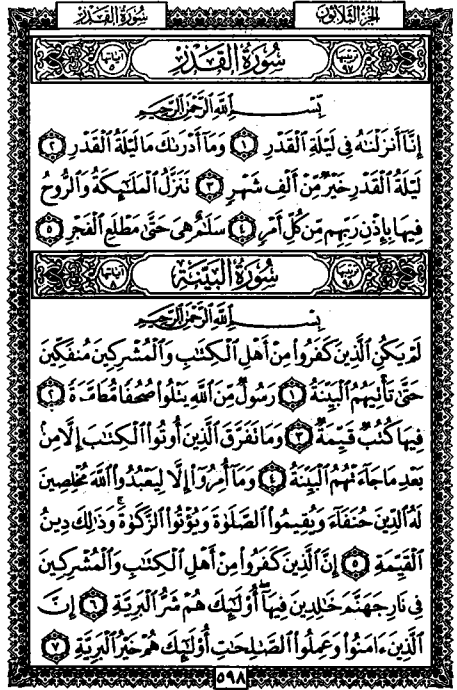 سُورَةُ القَدْرِ
الجُزْءُ الثَّلَاثُونَ
ترتيبها ٩٧ سُورَةُ القَدْرِ آياتها ٥
بِسْمِ اللَّهِ الرَّحْمَٰنِ الرَّحِيمِ
إِنَّا أَنزَلْنَٰهُ فِي لَيْلَةِ الْقَدْرِ ١ وَمَا أَدْرَىٰكَ مَا لَيْلَةُ الْقَدْرِ ٢
لَيْلَةُ الْقَدْرِ خَيْرٌ مِّنْ أَلْفِ شَهْرٍ ٣ تَنَزَّلُ الْمَلَٰٓئِكَةُ وَالرُّوحُ
فِيهَا بِإِذْنِ رَبِّهِم مِّن كُلِّ أَمْرٍ ٤ سَلَٰمٌ هِيَ حَتَّىٰ مَطْلَعِ الْفَجْرِ ٥
ترتيبها ٩٨ سُورَةُ البَيِّنَةِ آياتها ٨
بِسْمِ اللَّهِ الرَّحْمَٰنِ الرَّحِيمِ
لَمْ يَكُنِ الَّذِينَ كَفَرُوا مِنْ أَهْلِ الْكِتَٰبِ وَالْمُشْرِكِينَ مُنفَكِّينَ
حَتَّىٰ تَأْتِيَهُمُ الْبَيِّنَةُ ١ رَسُولٌ مِّنَ اللَّهِ يَتْلُوا صُحُفًا مُّطَهَّرَةً ٢
فِيهَا كُتُبٌ قَيِّمَةٌ ٣ وَمَا تَفَرَّقَ الَّذِينَ أُوتُوا الْكِتَٰبَ إِلَّا مِنْ
بَعْدِ مَا جَآءَتْهُمُ الْبَيِّنَةُ ٤ وَمَآ أُمِرُوٓا إِلَّا لِيَعْبُدُوا اللَّهَ مُخْلِصِينَ
لَهُ الدِّينَ حُنَفَآءَ وَيُقِيمُوا الصَّلَوٰةَ وَيُؤْتُوا الزَّكَوٰةَ ۚ وَذَٰلِكَ دِينُ
الْقَيِّمَةِ ٥ إِنَّ الَّذِينَ كَفَرُوا مِنْ أَهْلِ الْكِتَٰبِ وَالْمُشْرِكِينَ
فِي نَارِ جَهَنَّمَ خَٰلِدِينَ فِيهَآ ۚ أُولَٰٓئِكَ هُمْ شَرُّ الْبَرِيَّةِ ٦ إِنَّ
الَّذِينَ ءَامَنُوا وَعَمِلُوا الصَّٰلِحَٰتِ أُولَٰٓئِكَ هُمْ خَيْرُ الْبَرِيَّةِ ٧
٥٩٨